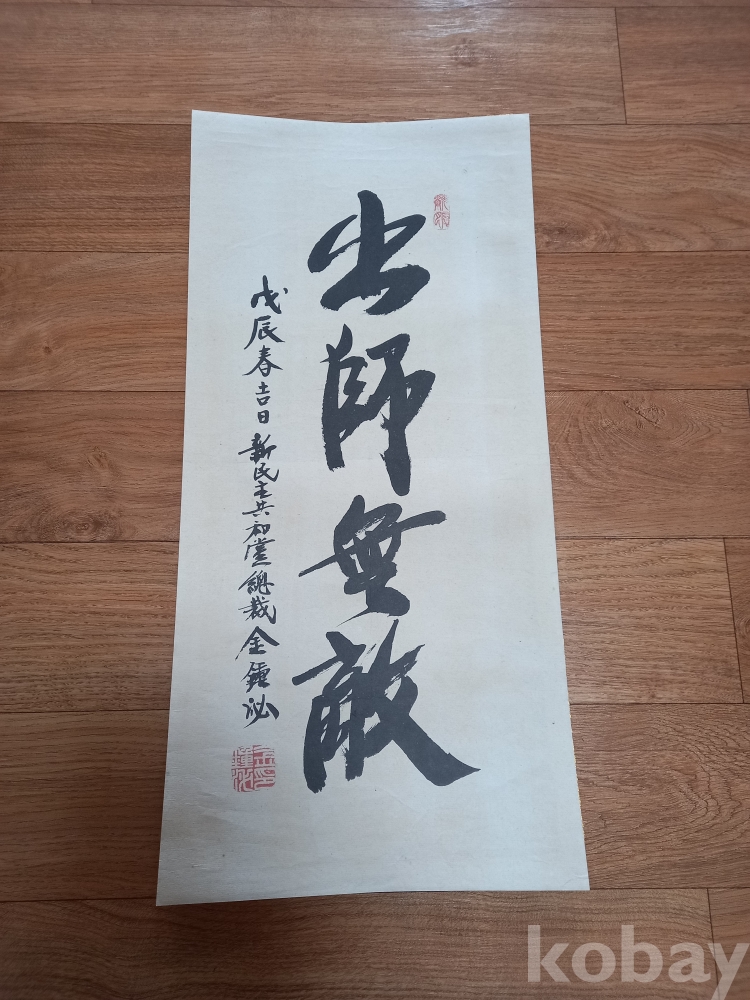 出師無敵
戊辰春吉日 新民主共和堂總裁 金鍾泌
kobay